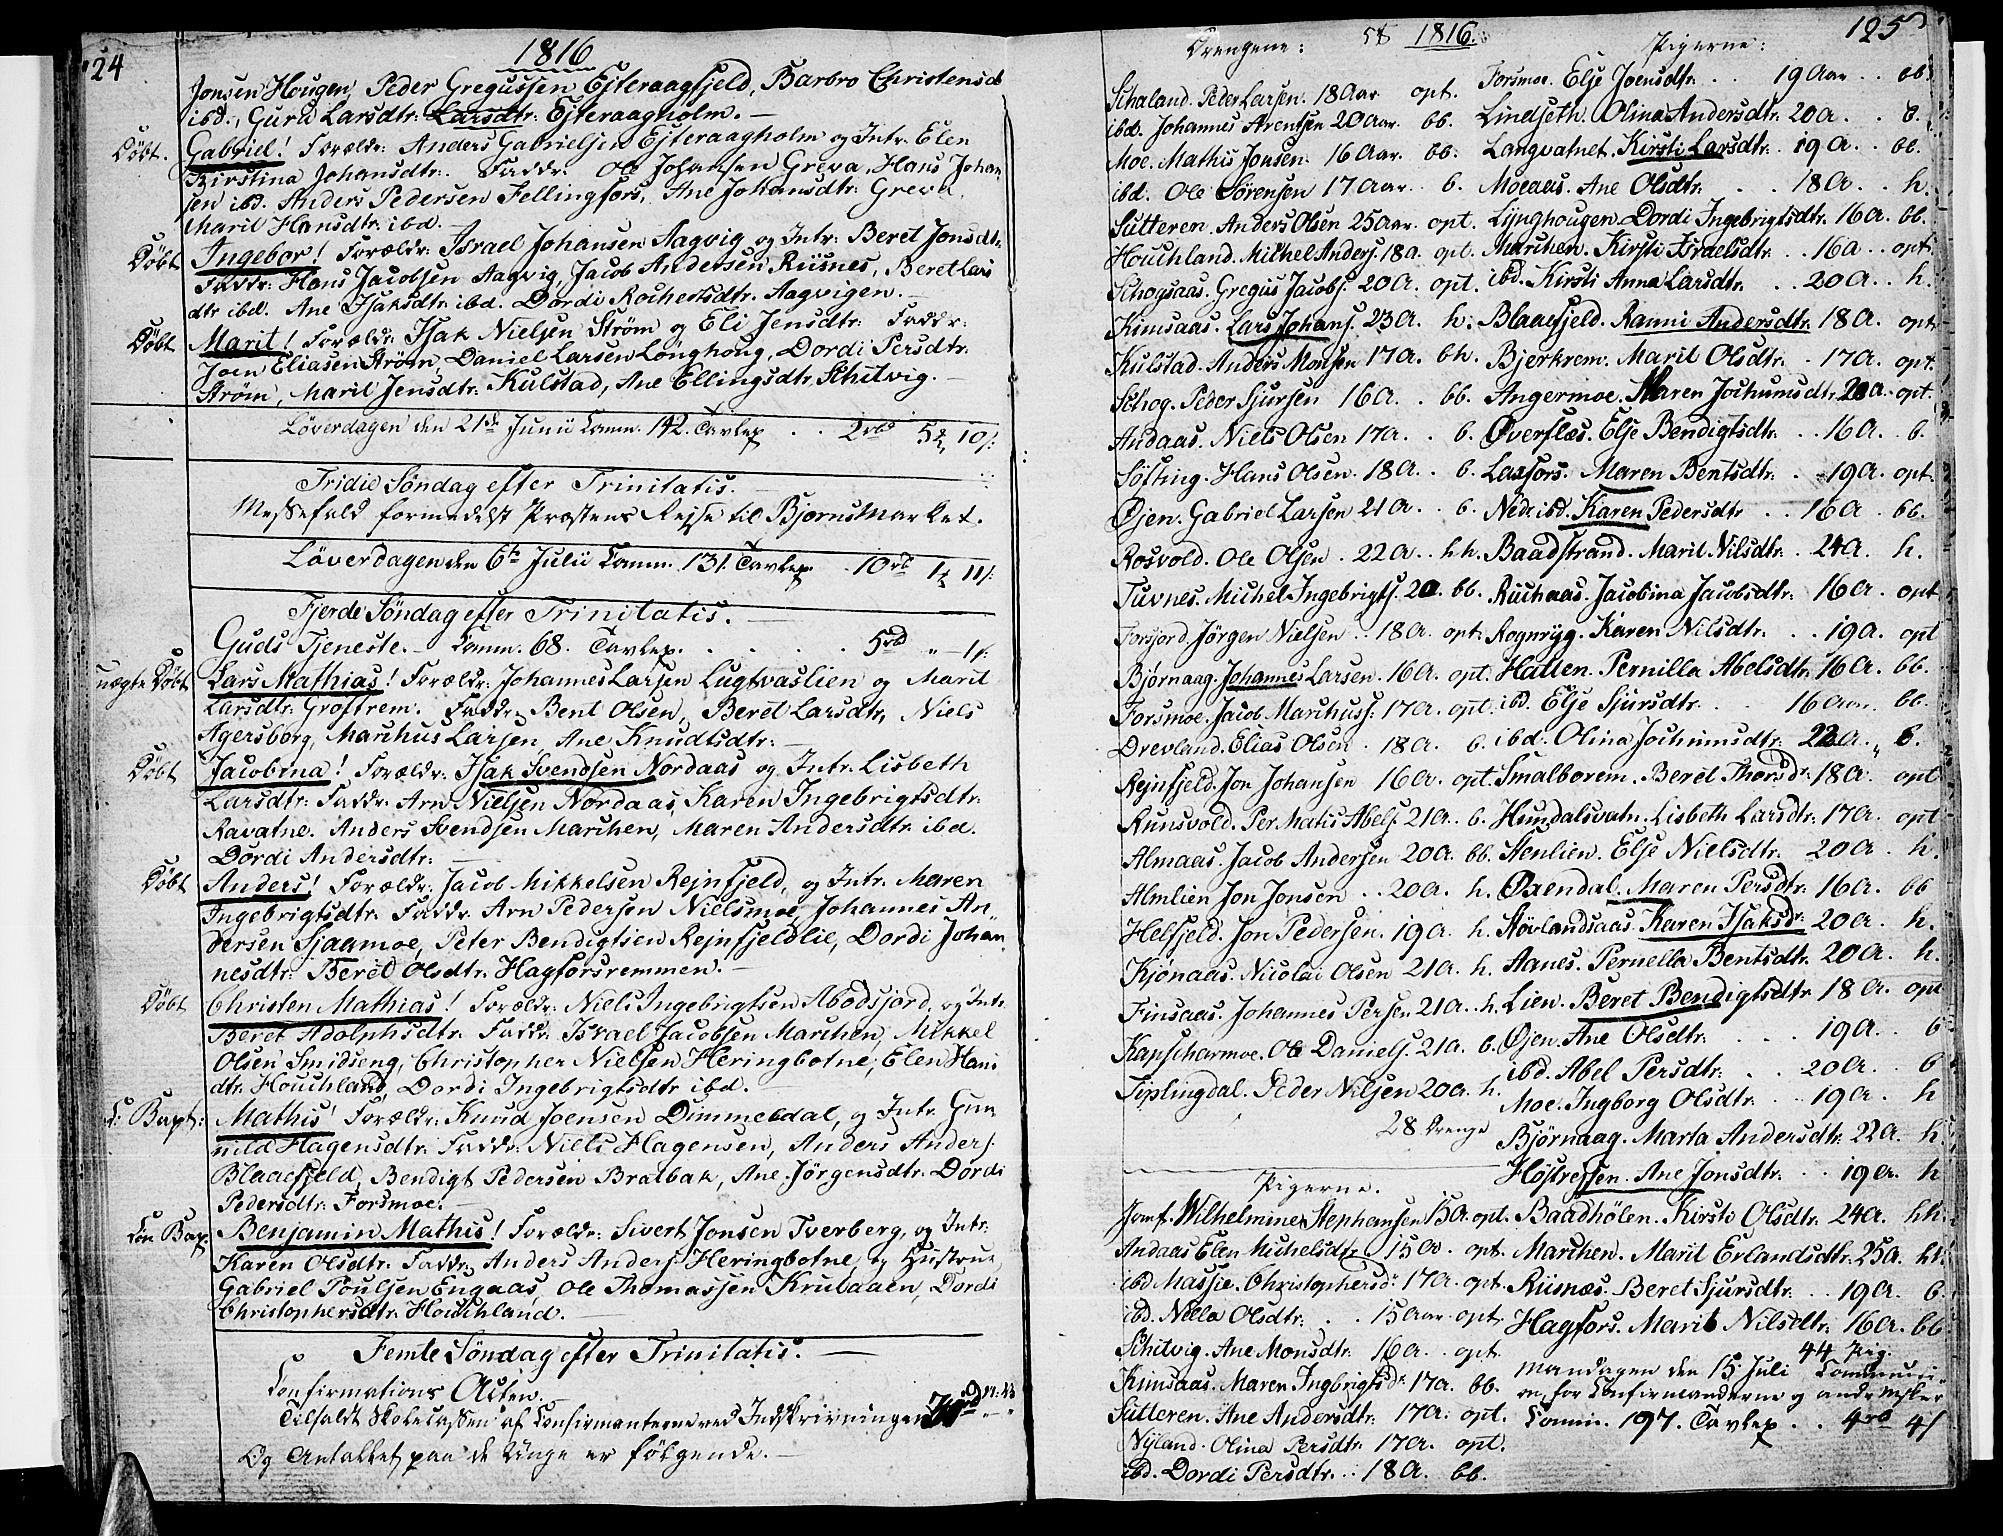 124
1816
Jonsen Hougen, Peder Gregussen Ejteraagfjeld, Barbro Christensd
ibd., Guru Larsdtr: Larsdtr: Ejteraagholm.
Döbt. Gabriel! Forældr: Anders Gabrielsen Ejteraagholm og Intr: Elen
Kirstina Johansdtr. Faddr. Ole Johansen Greva, Hans Johan
sen ibd. Anders Pedersen Fellingfors, Ane Johansdtr: Greva
Marit Hansdtr: ibd.
Döbt Ingebor! Forældr: Israel Johansen Aagvig og Intr: Beret Jonsdtr.
Faddr: Hans Jacobsen Aagvig, Jacob Andersen Riisnes, Beret Lars
dtr ibd. Ane Isaksdtr: ibd. Dordi Rochertsdtr. Aagvigen.
Döbt Marit! Forældr: Isak Nielsen Ström og Eli Jensdtr: Faddr:
Joen Eliasen Ström, Daniel Larsen Lönghoug, Dordi Persdtr.
Ström, Marit Jensdtr: Kulstad, Ane Ellingsdtr. Schitvig.
Löverdagen den 21de Junii Comm. 142. Tavlep. . . 2rbd 5 10 s:
Tridie Söndag efter Trinitatis.
Messefald formedelst Præstens Rejse til Bjornsmarket.
Löverdagen den 6te Julii Comm. 131. Tavlep. . 10rbd 1 11 s:
Fjerde Söndag efter Trinitatis.
Guds Tjeneste. Comm. 68. Tavlep. . . . . 5rbd " 1 s.
uægte Döbt Lars Mathias! Forældr: Johannes Larsen Lugtvaslien og Marit
Larsdtr. Groftrem. Faddr: Bent Olsen, Beret Larsdtr, Niels
Agersborg, Marchus Larsen, Ane Knudtsdtr:
Döbt Jacobina! Forældr: Isak Svendsen Nordaas og Intr: Lisbeth
Larsdtr: Faddr: Arn Nielsen Nordaas, Karen Ingebrigtsdtr:
Ravatne. Anders Svendsen Marchen, Maren Andersdtr: ibd.
Dordi Andersdtr:
Döbt Anders! Forældr: Jacob Mikkelsen Rejnfjeld, og Intr: Maren
Ingebrigtsdtr. Faddr. Arn Pedersen Nielsmoe, Johannes An-
dersen Sjaamoe, Peter Bendigtsen Rejnfjeldlie, Dordi Johan
nesdtr: Beret Olsdtr. Hagforsremmen.
Döbt Christen Mathias! Forældr: Niels Ingebrigtsen Abodsjord, og Intr
Beret Adolphsdtr. Faddr: Israel Jacobsen Marchen, Mikkel
Olsen Smidseng, Christopher Nielsen Heringbotne, Elen Hans
dtr. Houchland, Dordi Ingebrigtsdtr ibd.
C: Bapt: Mathis! Forældr: Knud Joensen Dimmeldal, og Intr. Gun
nild Hagensdtr: Faddr: Niels Hagensen, Anders Anders:
Blaaefjeld, Bendigt Pedersen Bratbak, Ane Jörgensdtr: Dordi
Pedersdtr: Forsmoe.
Con Bap Benjamin Mathis! Forældr: Sivert Jonsen Tverberg, og Intr:
Karen Olsdtr: Faddr: Anders Anders: Heringbotne, og Hustrue
Gabriel Poulsen Engaas, Ole Thomassen Krutaaen, Dordi
Christophersdtr. Houchland.
Femte Söndag efter Trinitatis.
Confirmations Acten.
Tilfaldt Skolecassen af Confirmanterne ved Indskrivningen
Og Antallet paa de Unge er fölgende.
125
1816
Drengene:
Schaland. Peder Larsen. 18 Aar opt.
ibd. Johannes Arentsen 20 Aar. bb.
Moe. Mathis Jonsen. 16 Aar. bb.
ibd. Ole Sörensen 17 Aar. b.
Sutteren. Anders Olsen 25 Aar. opt.
Houchland. Mikkel Anders. 18 a. opt.
Schogsaas. Gregus Jacobs. 20 A. opt.
Kimsaas. Lars Johans. 23 A. h:
Kulstad. Anders Monsen 17 A. bh.
Schog. Peder Sjursen 16 A. . bb.
Andaas. Niels Olsen 17 A. . b.
Söfting. Hans Olsen. 18 A. . b.
Öjen. Gabriel Larsen 21 A. . b.
Rosvold. Ole Olsen . 22 A. . hh.
Tuvnes. Michel Ingebrigts. 20. bb.
Forsjord. Jörgen Nielsen . . 18 A. opt.
Björnaag. Johannes Larsen. 16 A. opt.
Forsmoe. Jacob Marchuss. 17 A. opt.
Drevland. Elias Olsen . 18 A. b.
Rejnfjeld. Jon Johansen 16 A. opt.
Runsvold. Per Matis Abels. 21 A. b.
Almaas. Jacob Andersen 20 A. bb.
Almlien Jon Jonsen . . 20 A. h.
Helfjeld. Jon Pedersen. 19 A. h.
Kjönaas. Nicolai Olsen 21 A. h.
Finsaas. Johannes Persen 21 A. h.
Kapscharmoe. Ole Daniels. 21 A. b.
Tiplingdal. Peder Nilsen 20 A. h.
28 Drenge
Pigerne.
Jomf. Wilhelmine Stephansen 15 A. opt.
Andaas Elen Michelsdtr 15 A. opt.
ibd Massie. Christophersd. 17 A. opt
ibd. Nilla Olsdtr: . . 15 Aar. opt
Schitvig. Ane Monsdtr. 16 A. . opt.
Kimsaas. Maren Ingbrigtsd. 17 A. bb.
Sutteren. Ane Andersdtr. 17 A. opt.
Nyland. Olina Persdtr. 17 A. opt.
ibd. Dordi Persdtr. . . 18 A. bb.
Pigerne:
Forsmoe. Else Joensdtr. . . 19 Aar . . bb
Lindseth. Olina Andersdtr: 20 A. . b.
Langvatnet. Kirsti Larsdtr. 19 A. . bb.
Moeaas. Ane Olsdtr. . . 18 A. . h.
Lynghougen. Dordi Ingebrigtsdtr. 16 A. bb.
Marchen. Kirsti Israelsdtr. . 16 A. . opt
ibd. Kirsti Anna Larsdtr. . . 20 A. . h.
Blaaefjeld. Ranni Andersdtr. 18 A. opt
Bjerkrem. Marit Olsdtr. . 17 A. opt.
Angermoe. Maren Jochumsdtr. 20 A. opt.
Överflæs. Else Bendigtsdtr. . . 16 A. . b.
Laxfors. Maren Bentsdtr. . 19 A. opt.
Ned. ibd. Karen Pedersdtr . . 16 A. bb.
Baadstrand. Marit Nilsdtr. . 24 A. h.
Ruchaas. Jacobina Jacobsdtr. 16 A. opt
Rognryg. Karen Nilsdtr. . . 19 A. opt
Hatten. Pernilla Abelsdtr. 16 A. bb.
ibd. Else Sjursdtr. . 16 Aar. bb.
ibd. Olina Jochumsdtr. 22 A. b.
Smalborem. Beret Thorsd. 18 A. opt
Hundalsvatn. Lisbeth Larsdtr. 17 A. opt
Stenlien. Else Nielsdtr. 20 A. h.
Oxendal. Maren Persdtr. 16 A. bb
Hövlandsaas. Karen Isaksd. 20 A. h.
Aanes. Pernella Bentsdtr. 20 A. h.
Lien. Beret Bendigtsdtr 18 A. opt
Öjen. Ane Olsdtr. . . . 19 A. . b
ibd. Abel Persdtr. . . 20 A. . b
Moe. Ingborg Olsdtr. . . 19 A. h
Björnaag. Marta Andersdtr. 22 A. h
Höjtressen. Ane Jonsdtr. . . 19 A. h
Baadhölen. Kirsti Olsdtr. 24 A. hh
Marchen. Marit Erlandsdtr. 25 A. hh
Riisnæs. Beret Sjursdtr. . . 19 A. b.
Hagfors. Marit Nilsdtr. 16 A. bb
44 Pig.
Mandagen den 15 Juli Communi-
on for Confirmanderne og andre
Comm. 197. Tavlep. . . 4rb 4 s